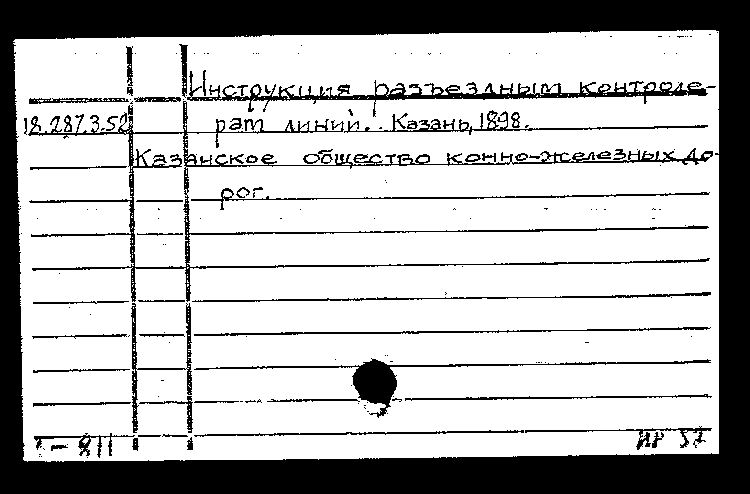 Инструкция разъездным контроле-
18.287.3.52 рам линий. Казань, 1898.
Казанское общество конно-железных до-
рог.
— 811 ИР 57